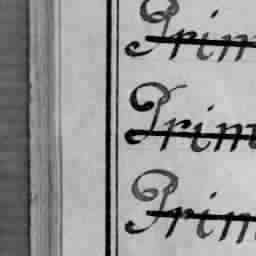 Prim
Prim
Prim